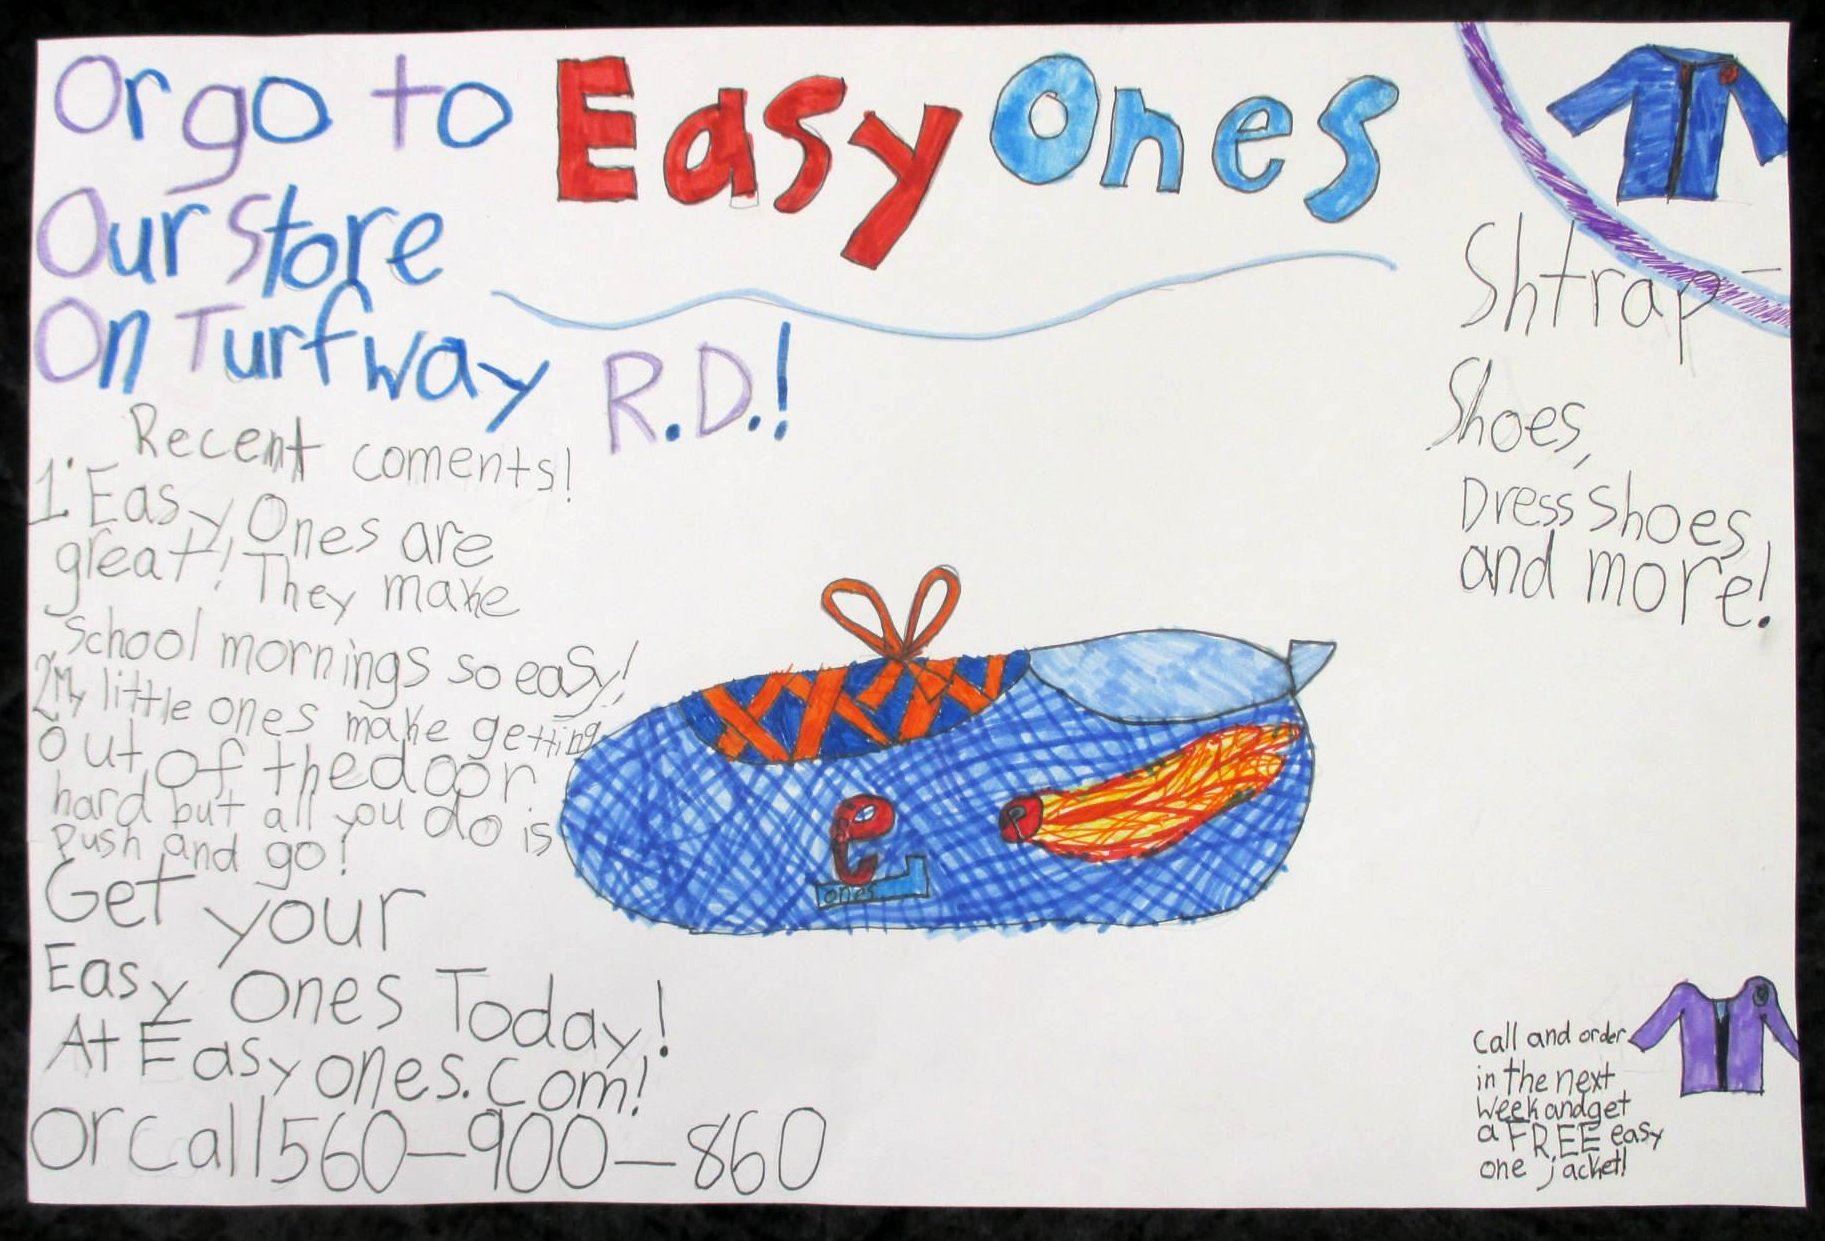 Or go to
Our Store
On Turfway
R.D.!
Easy Ones
Recent coments!
1. Easy Ones are
great! They make
School mornings so easy!
2. My little ones make getting
out of the door
hard but all you do is
Push and go!
Get your
Easy Ones Today!
At Easyones.com!
Or call 560-900-860
e
ones
Shtrap-
Shoes,
Dress Shoes
and more!
Call and order
in the next
week and get
a FREE easy
one jacket!